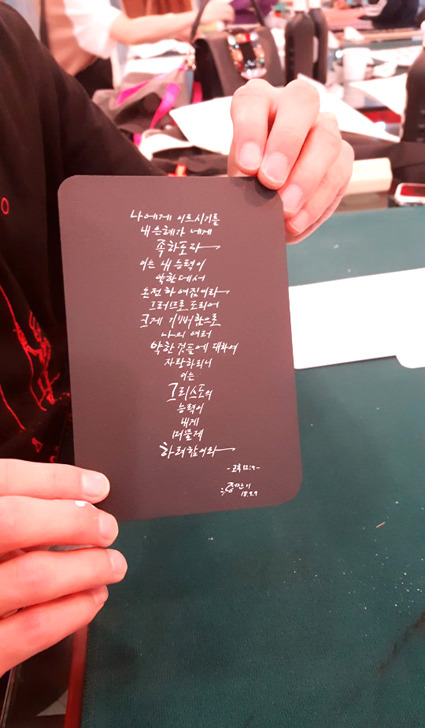 나에게 이르시기를
내 은혜가 네게
족하도다
이는 내 능력이
약한데서
온전하여짐이라
그러므로 도리어
크게 기뻐함으로
나의 여러
약한것들에 대하여
자랑하리니
이는
그리스도의
능력이
내게
머물게
하려함이라
-고후 12:9-
18.9.9